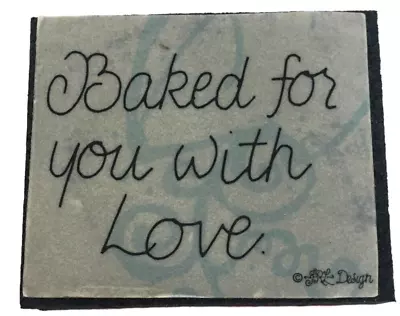 Baked for
you with
Love.
© Design